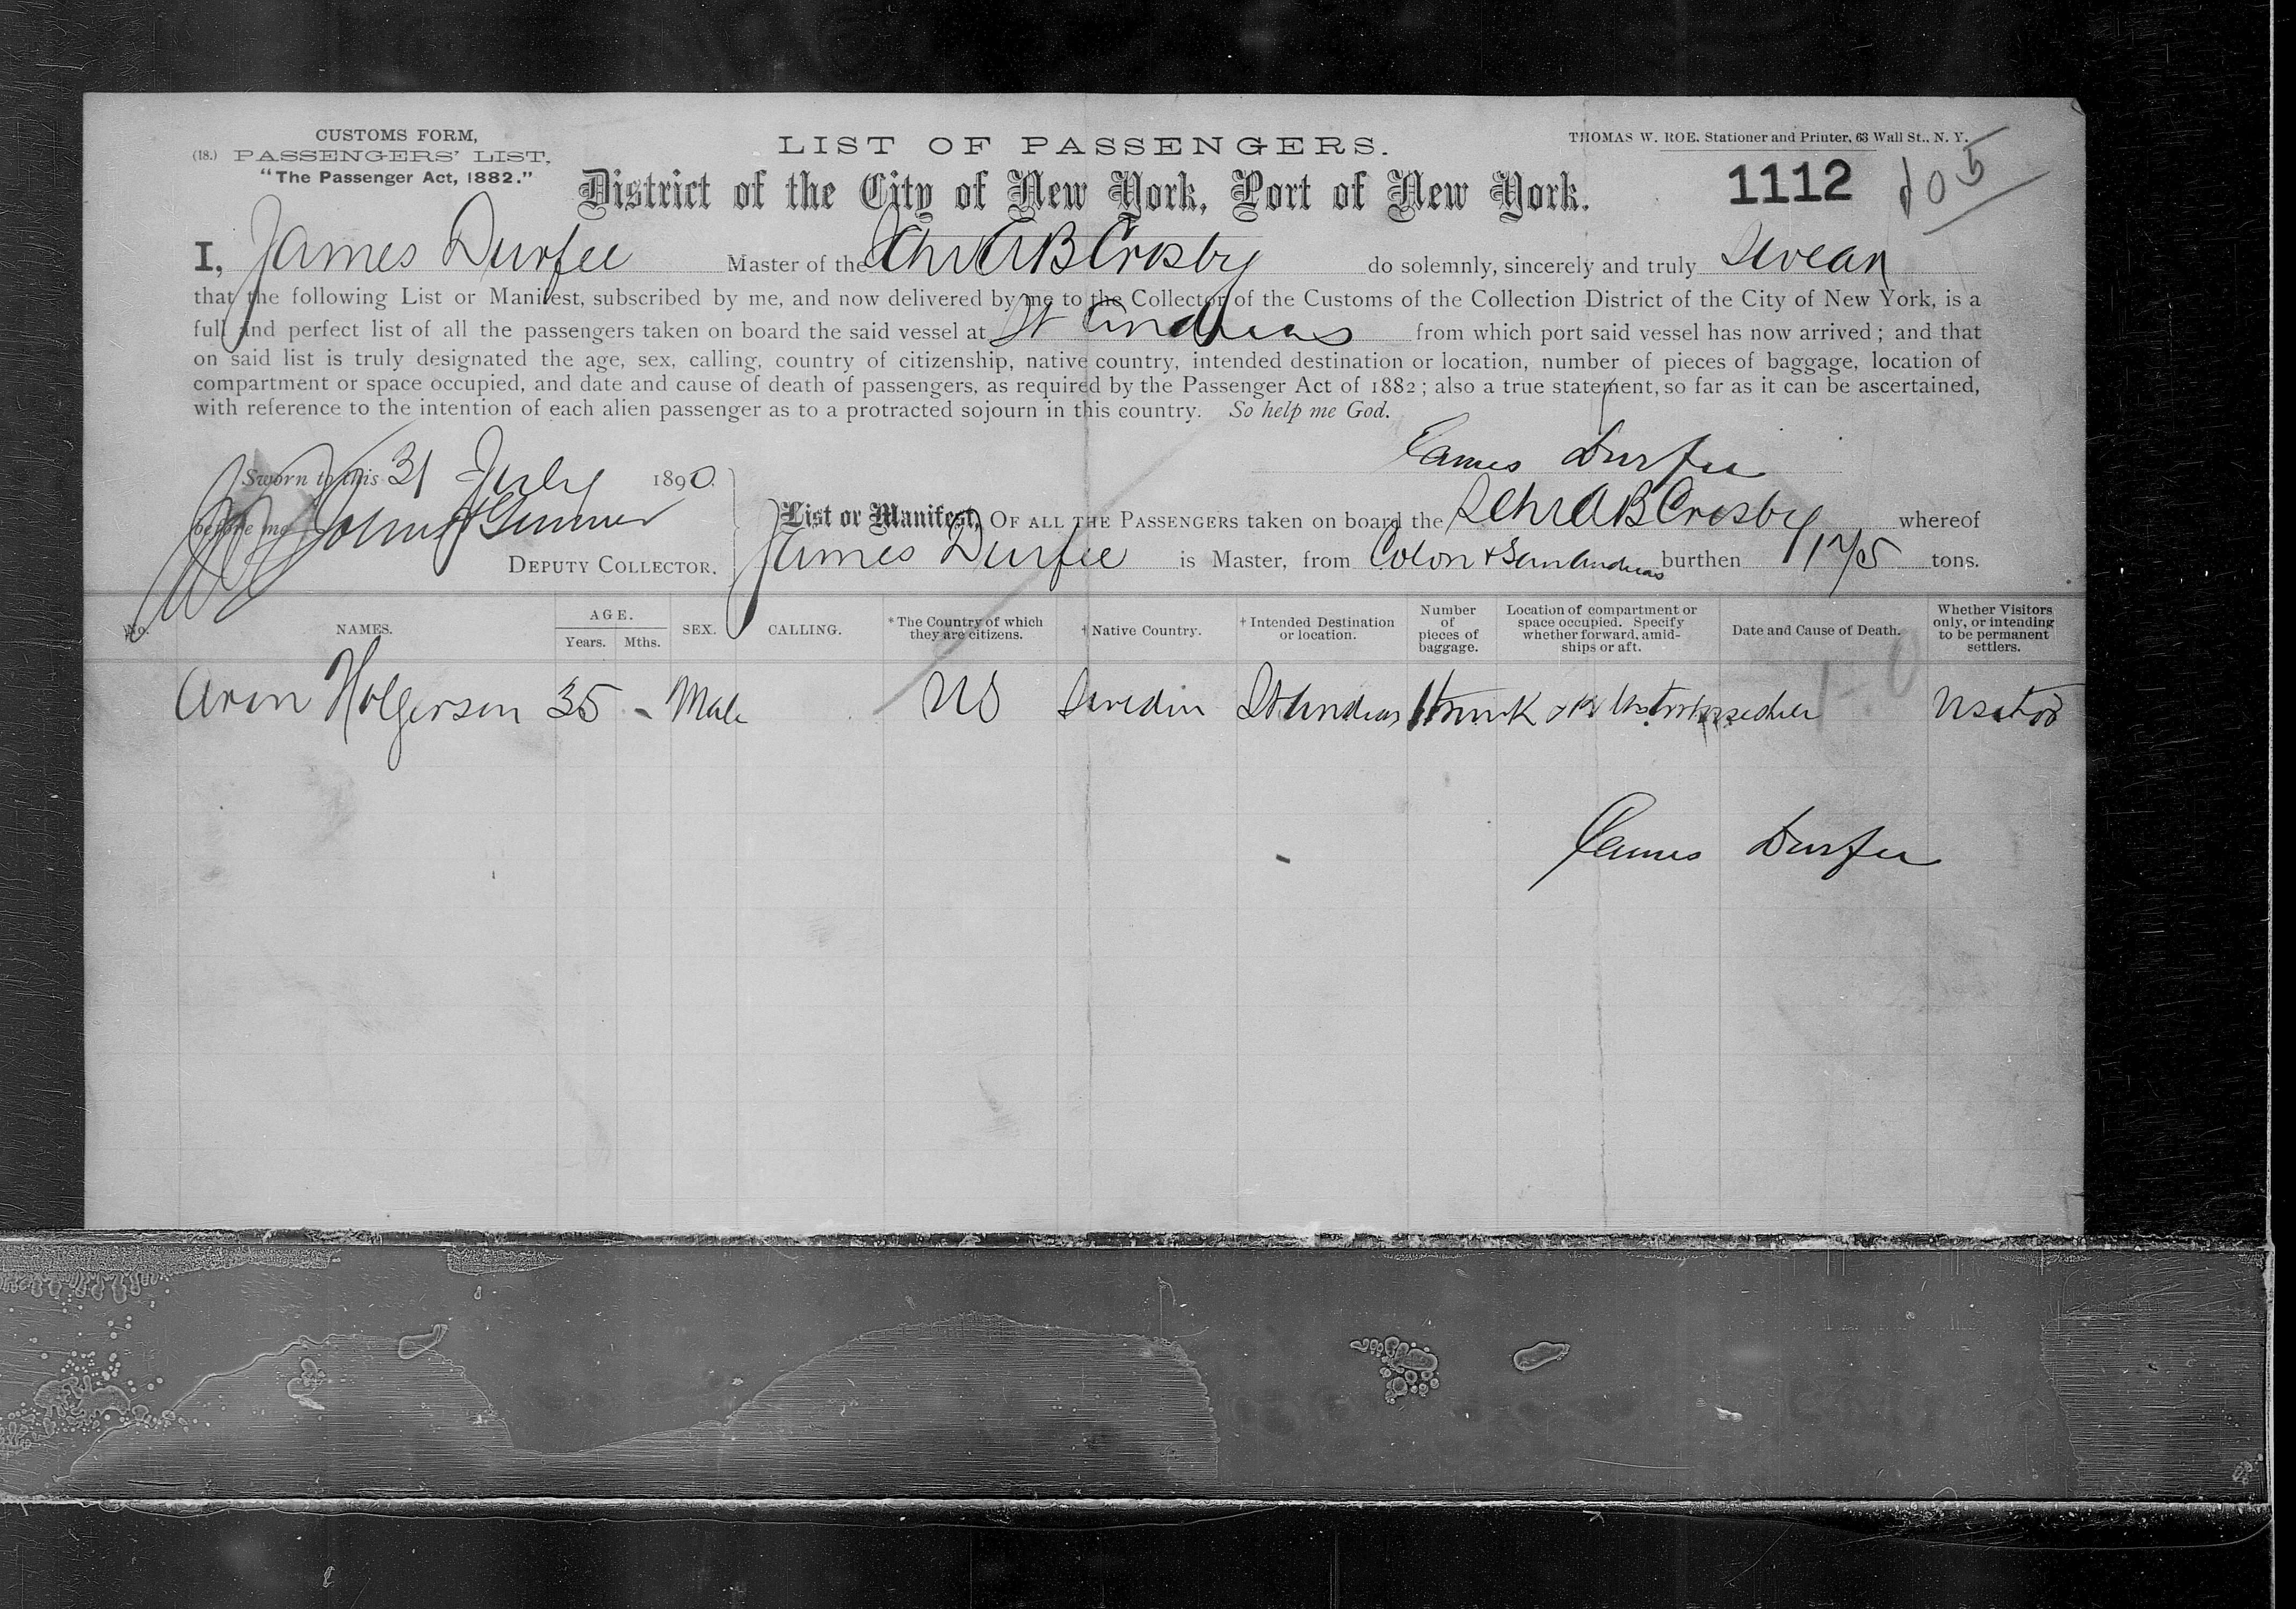 CUSTOMS FORM,
(18.) PASSENGERS' LIST,
"The Passenger Act, 1882."
LIST OF PASSENGERS.
THOMAS W. ROE. Stationer and Printer, 63 Wall St., N. Y.
District of the City of New York, Port of New York.
1112
I, James Durfee Master of the Schr A B Crosby do solemnly, sincerely and truly swear
that the following List or Manifest, subscribed by me, and now delivered by me to the Collector of the Customs of the Collection District of the City of New York, is a
full and perfect list of all the passengers taken on board the said vessel at St Andreas from which port said vessel has now arrived; and that
on said list is truly designated the age, sex, calling, country of citizenship, native country, intended destination or location, number of pieces of baggage, location of
compartment or space occupied, and date and cause of death of passengers, as required by the Passenger Act of 1882; also a true statement, so far as it can be ascertained,
with reference to the intention of each alien passenger as to a protracted sojourn in this country. So help me God.
James Durfee
Sworn to this 31 July 1890.
before me
DEPUTY COLLECTOR.
List or Manifest, OF ALL THE PASSENGERS taken on board the Schr A B Crosby whereof
James Durfee is Master, from Colon & San Andreas burthen tons.
No. NAMES. AGE. Years. Mths. SEX. CALLING. *The Country of which they are citizens. †Native Country. †Intended Destination or location. Number of pieces of baggage. Location of compartment or space occupied. Specify whether forward, amidships or aft. Date and Cause of Death. Whether Visitors only, or intending to be permanent settlers.
Holgerson 35 - Male US Sweden St Andreas 1 trunk
James Durfee